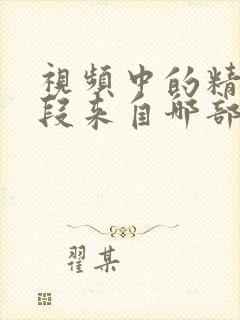 視頻中的精
段来自哪部
翟某